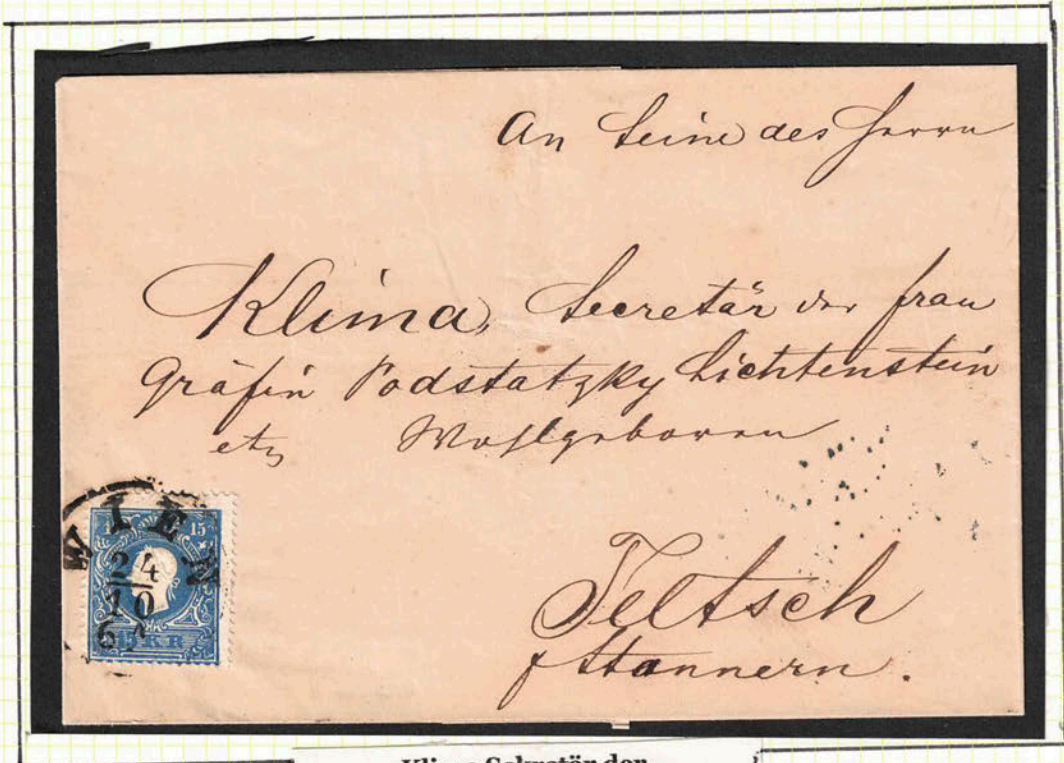 An Seine des Herrn
Klima, Secretär der Frau
Gräfin Podstatzky Lichtenstein
etz Wohlgeboren
Teltsch
Stannern.
WIEN
24
10
15
15 KR
Klima Sekretär der